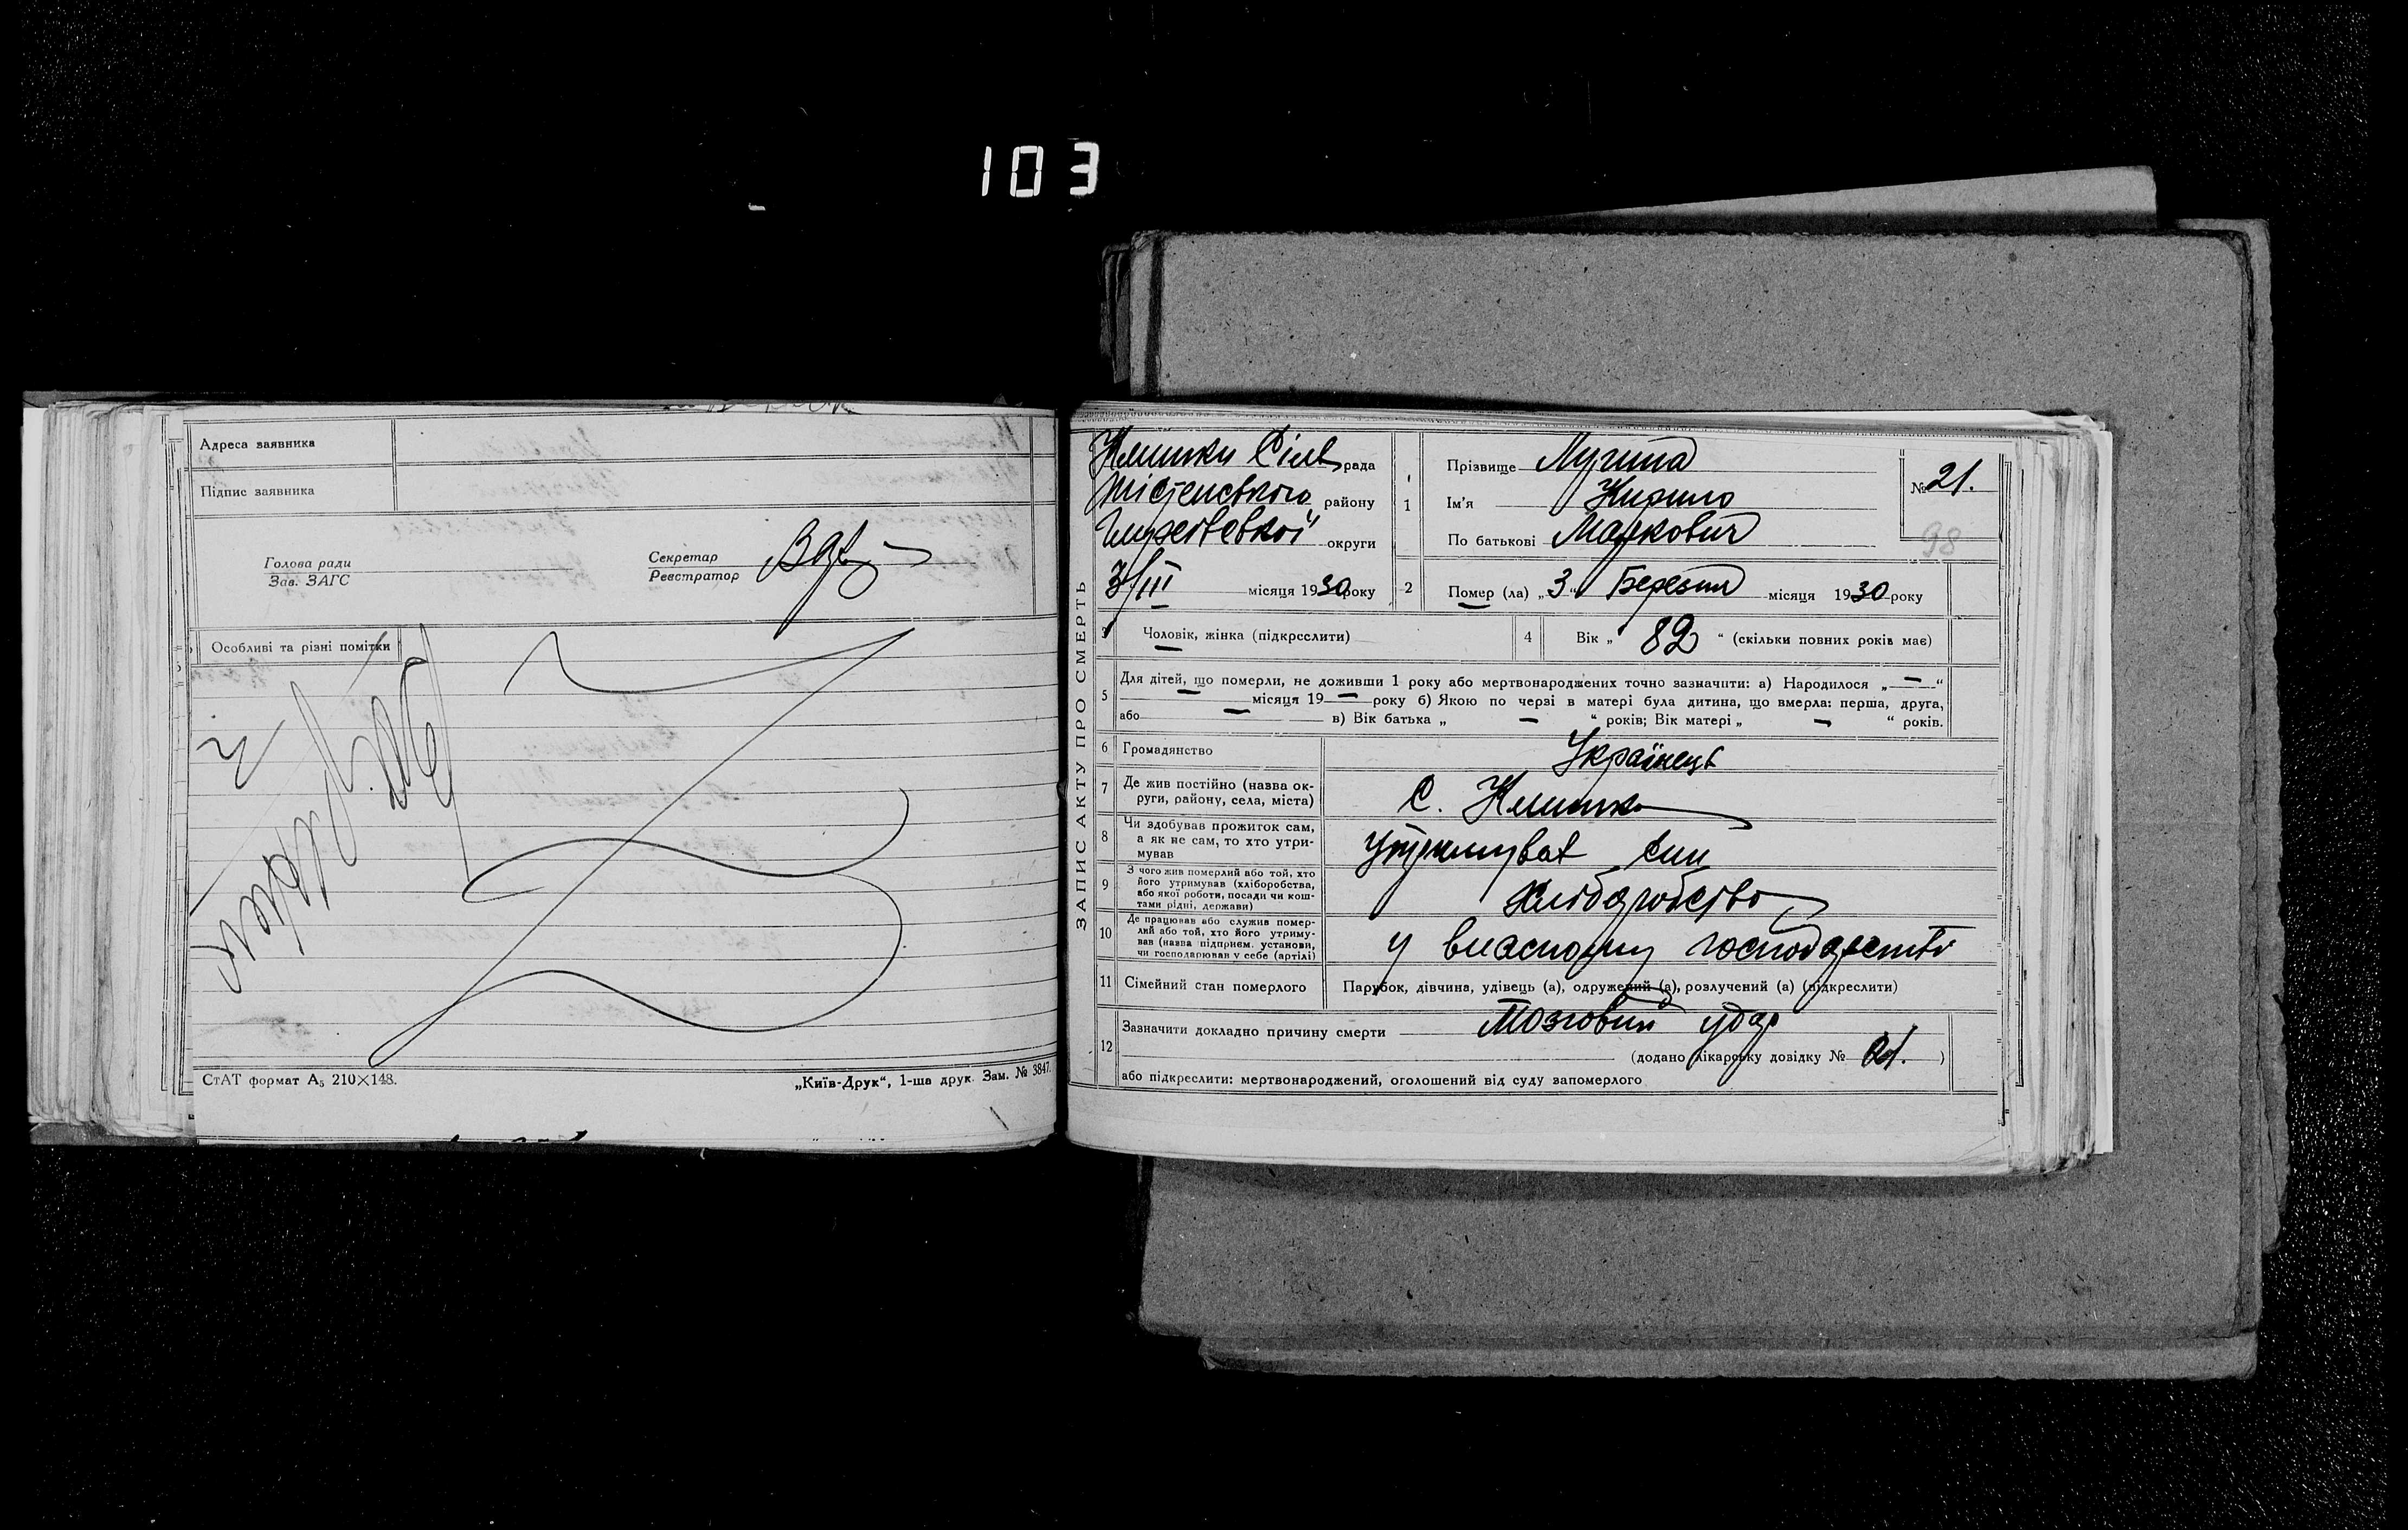 103
Адреса заявника
Підпис заявника
Голова ради
Зав. ЗАГС
Секретар
Реєстратор
Особливі та різні помітки
СтАТ формат А₅ 210×148.
„Київ-Друк“, 1-ша друк. Зам. № 3847.
ЗАПИС АКТУ ПРО СМЕРТЬ
Клишки Сіль рада
району
округи
3/III місяця 1930 року
1
1
Прізвище
Ім'я Кирило
По батькові Маркович
№ 21.
98
2
Помер (ла) „3“ Березня місяця 1930 року
3
Чоловік, жінка (підкреслити)
4
Вік „ 82 “ (скільки повних років має)
5
Для дітей, що померли, не доживши 1 року або мертвонароджених точно зазначити: а) Народилося „ — “
— місяця 19 — року б) Якою по черзі в матері була дитина, що вмерла: перша, друга,
або — в) Вік батька „ — “ років; Вік матері „ — “ років.
6 Громадянство Українець
7 Де жив постійно (назва ок-
руги, району, села, міста) С. Клишки
8 Чи здобував прожиток сам,
а як не сам, то хто утри-
мував утримував син
9 З чого жив померлий або той, хто
його утримував (хліборобства,
або якої роботи, посади чи кош-
тами рідні, держави) хліборобство
10 Де працював або служив помер-
лий або той, хто його утриму-
вав (назва підприєм. установи,
чи господарював у себе (артілі) у власному господарстві
11 Сімейний стан померлого Парубок, дівчина, удівець (а), одружений (а), розлучений (а) (підкреслити)
12 Зазначити докладно причину смерти Мозговий удар
(додано лікарську довідку № 21. )
або підкреслити: мертвонароджений, оголошений від суду запомерлого